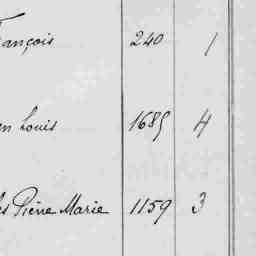 François 240 1
en Louis 1685 4
es Pierre Marie 1159 3